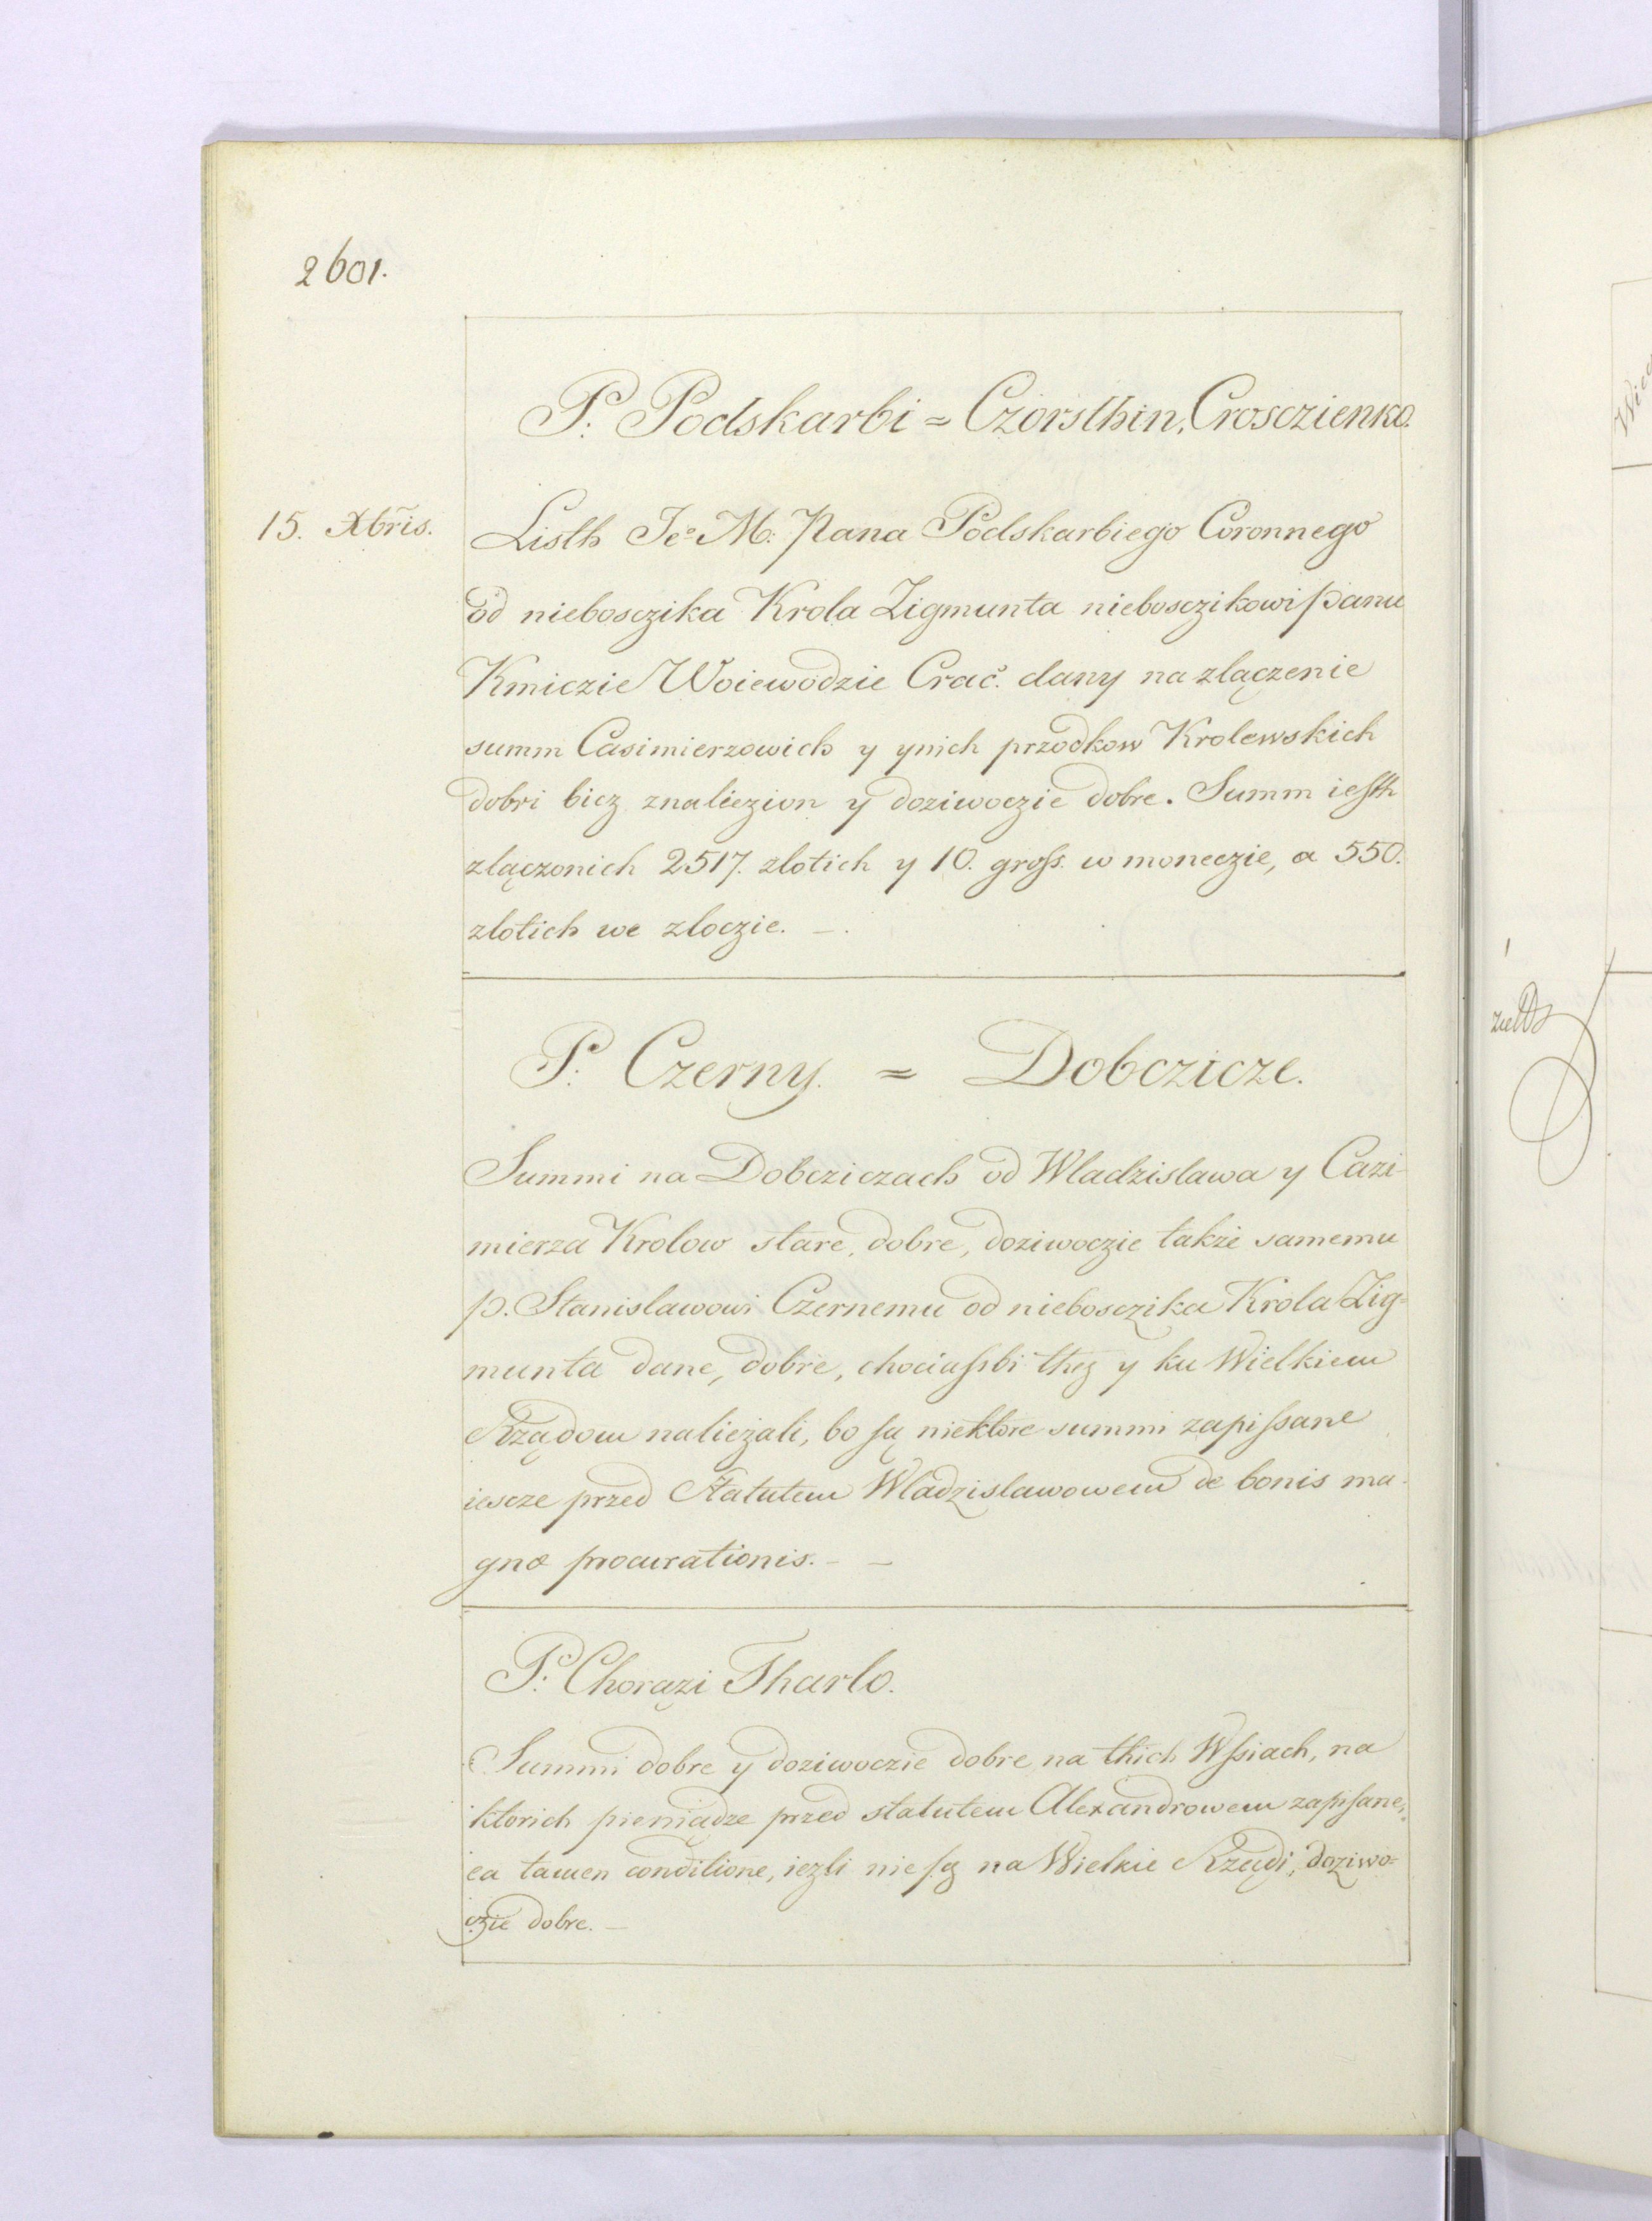 2601.
P. Podskarbi = Czorsthin, Crosczienko.
15. Xbris.
Listh Jeo M: Pana Podskarbiego Coronnego
od nieboszika Krola Zigmunta niebosczikowi panu
Kmiczie Woiewodzie Crac. dany na zlączenie
summ Casimierzowich y ynich przodkow Krolewskich
dobri bicz znaliezion y doziwoczie dobre. Summ iesth
zlączonich 2517. zlotich y 10. gross. w moneczie, a 550.
zlotich we zloczie. —.
P. Czerny. = Dobczicze.
Summi na Dobcziczach od Wladzislawa y Cazi-
mierza Krolow stare, dobre, doziwoczie także samemu
p. Stanislawowi Czernemu od niebosczika Krola Zig=
munta dane, dobre, chociassbi thez y ku Wielkiem
Rządom naliezali, bo są niektore summi zapissane
iescze przed Statutem Wladzislawowem de bonis ma-
gnæ procurationis. — —
P. Chorązi Tharlo.
Summi dobre y doziwoczie dobre na thich Wssiach, na
ktorich pieniądze przed statutem Alexandrowem zapisane,
ea tamen conditione, iezli nie są na Wielkie Rządi, doziwo=
czie dobre. —